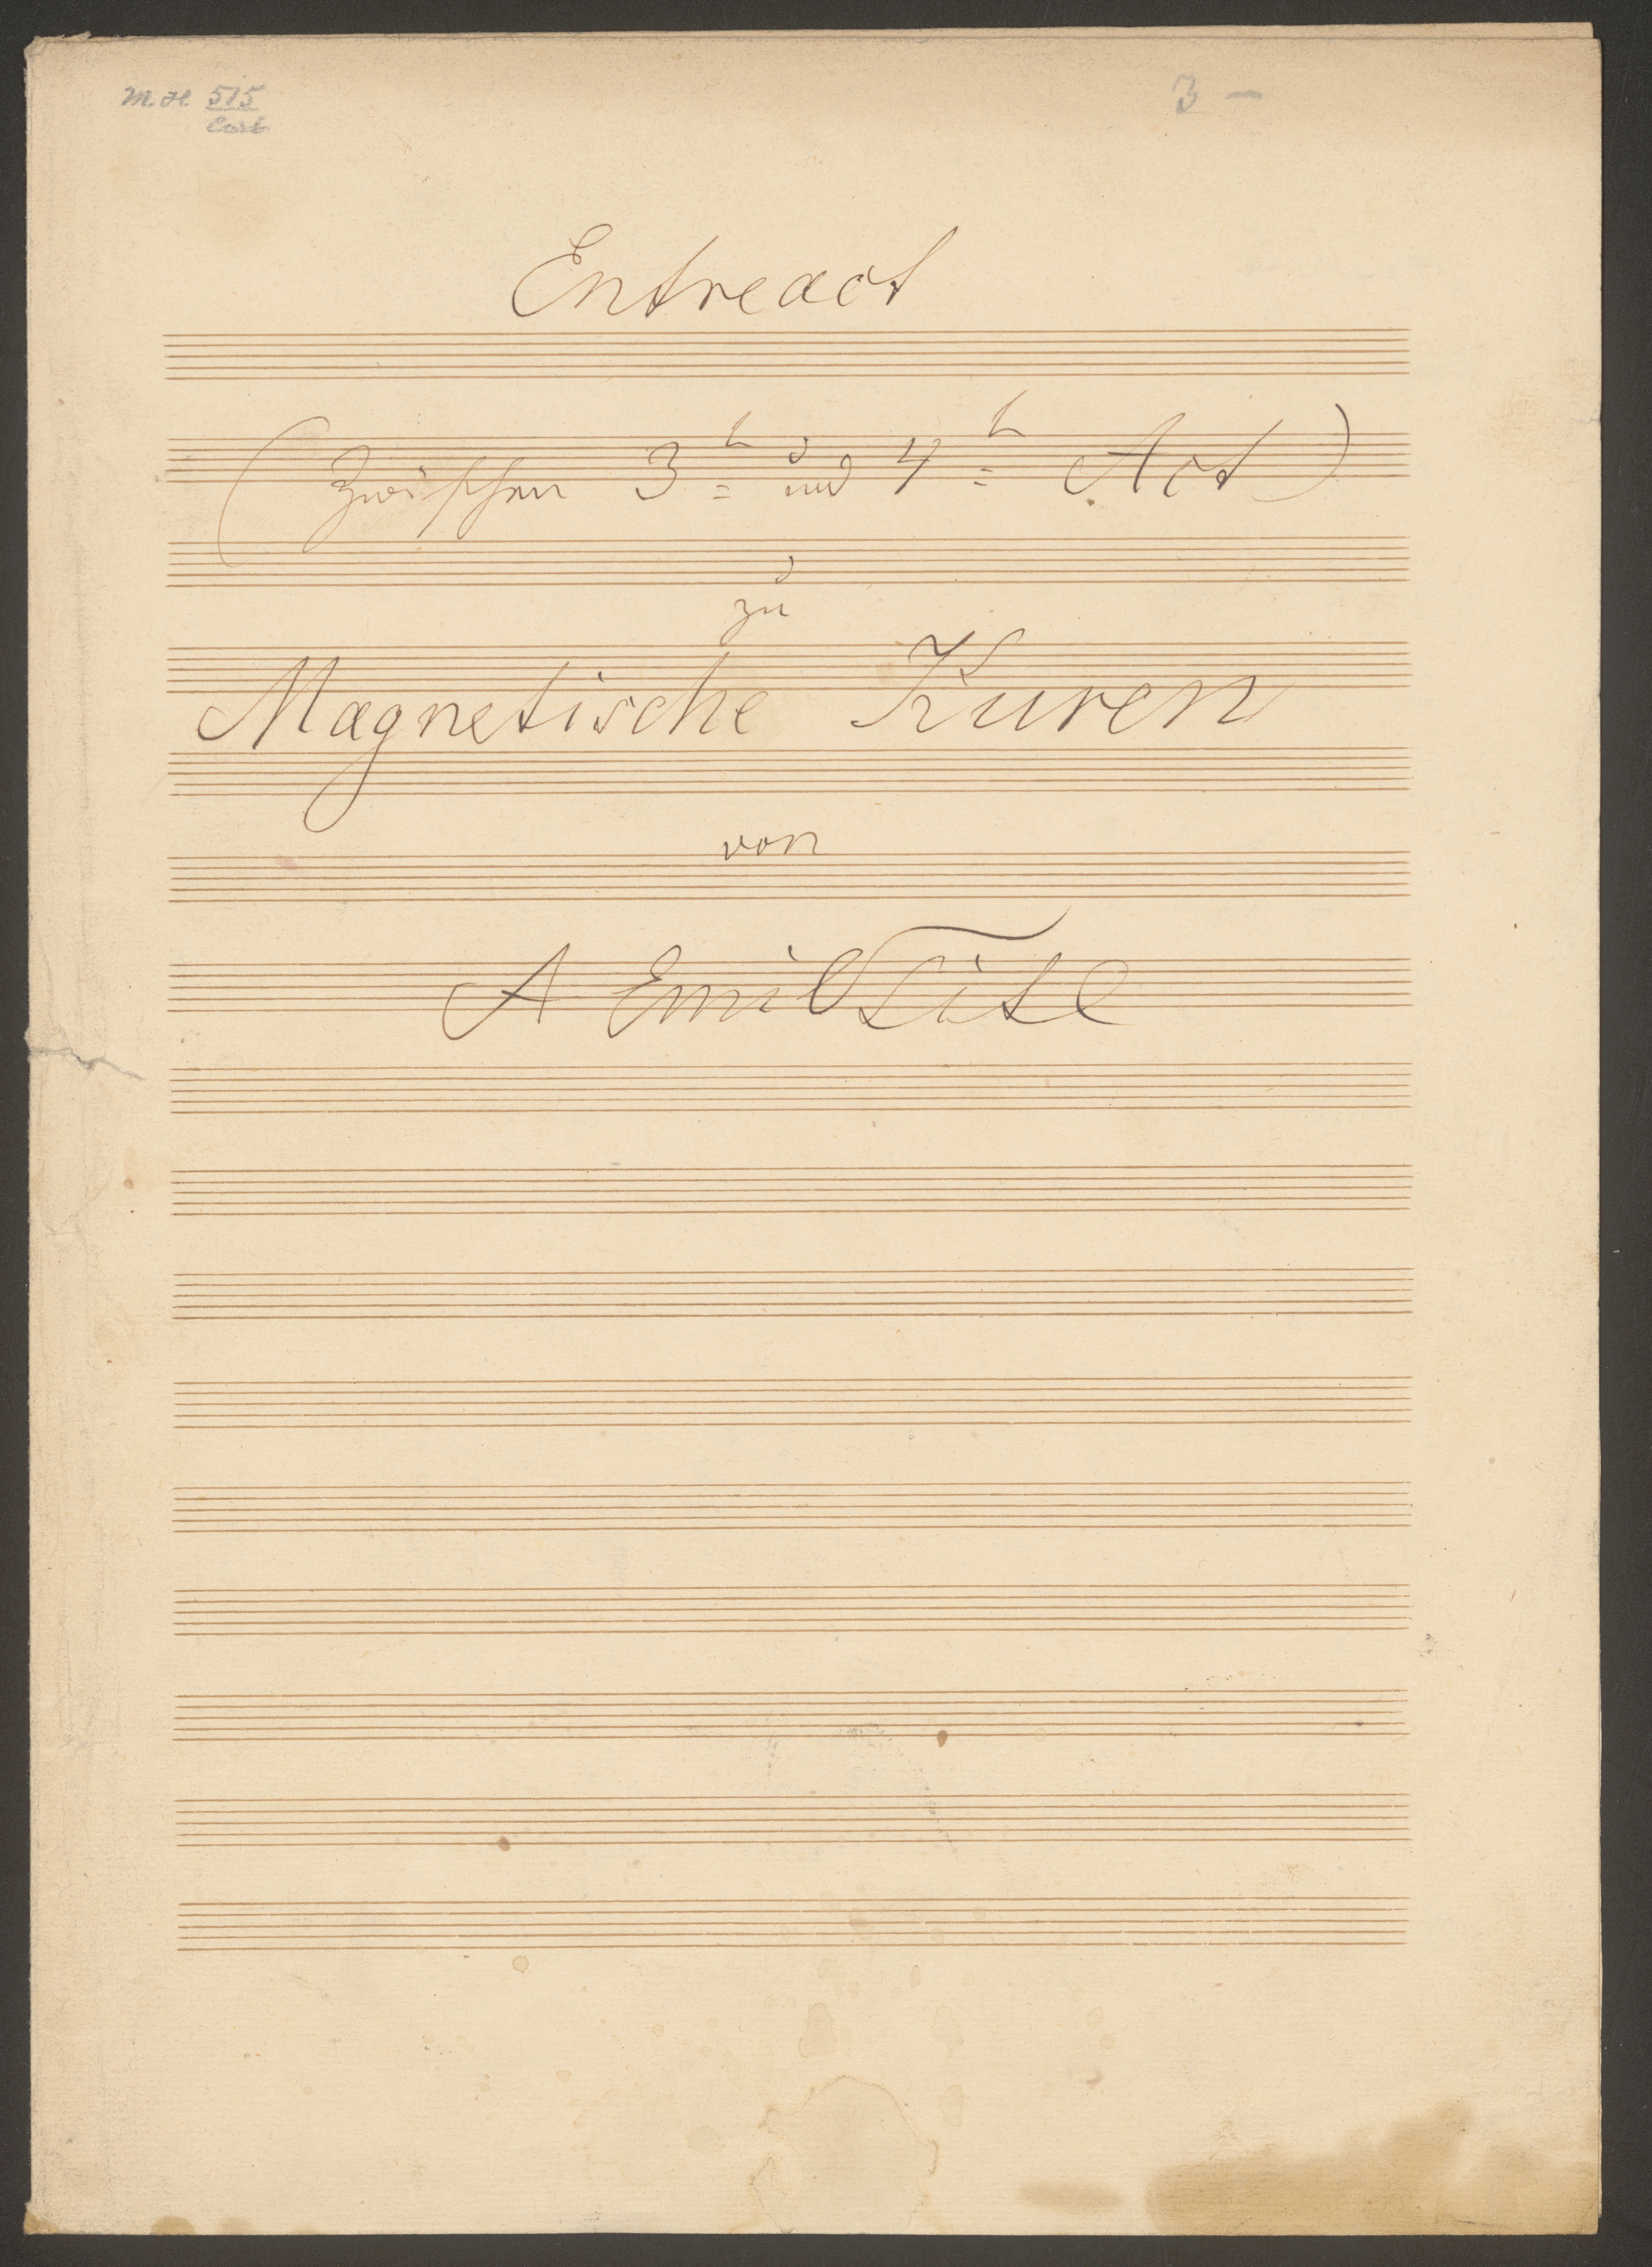 M.H 515
3 —
Entreact
(Zwischen 3t= und 4t= Act)
zu
Magnetische Kuren
von
A Emil Titl